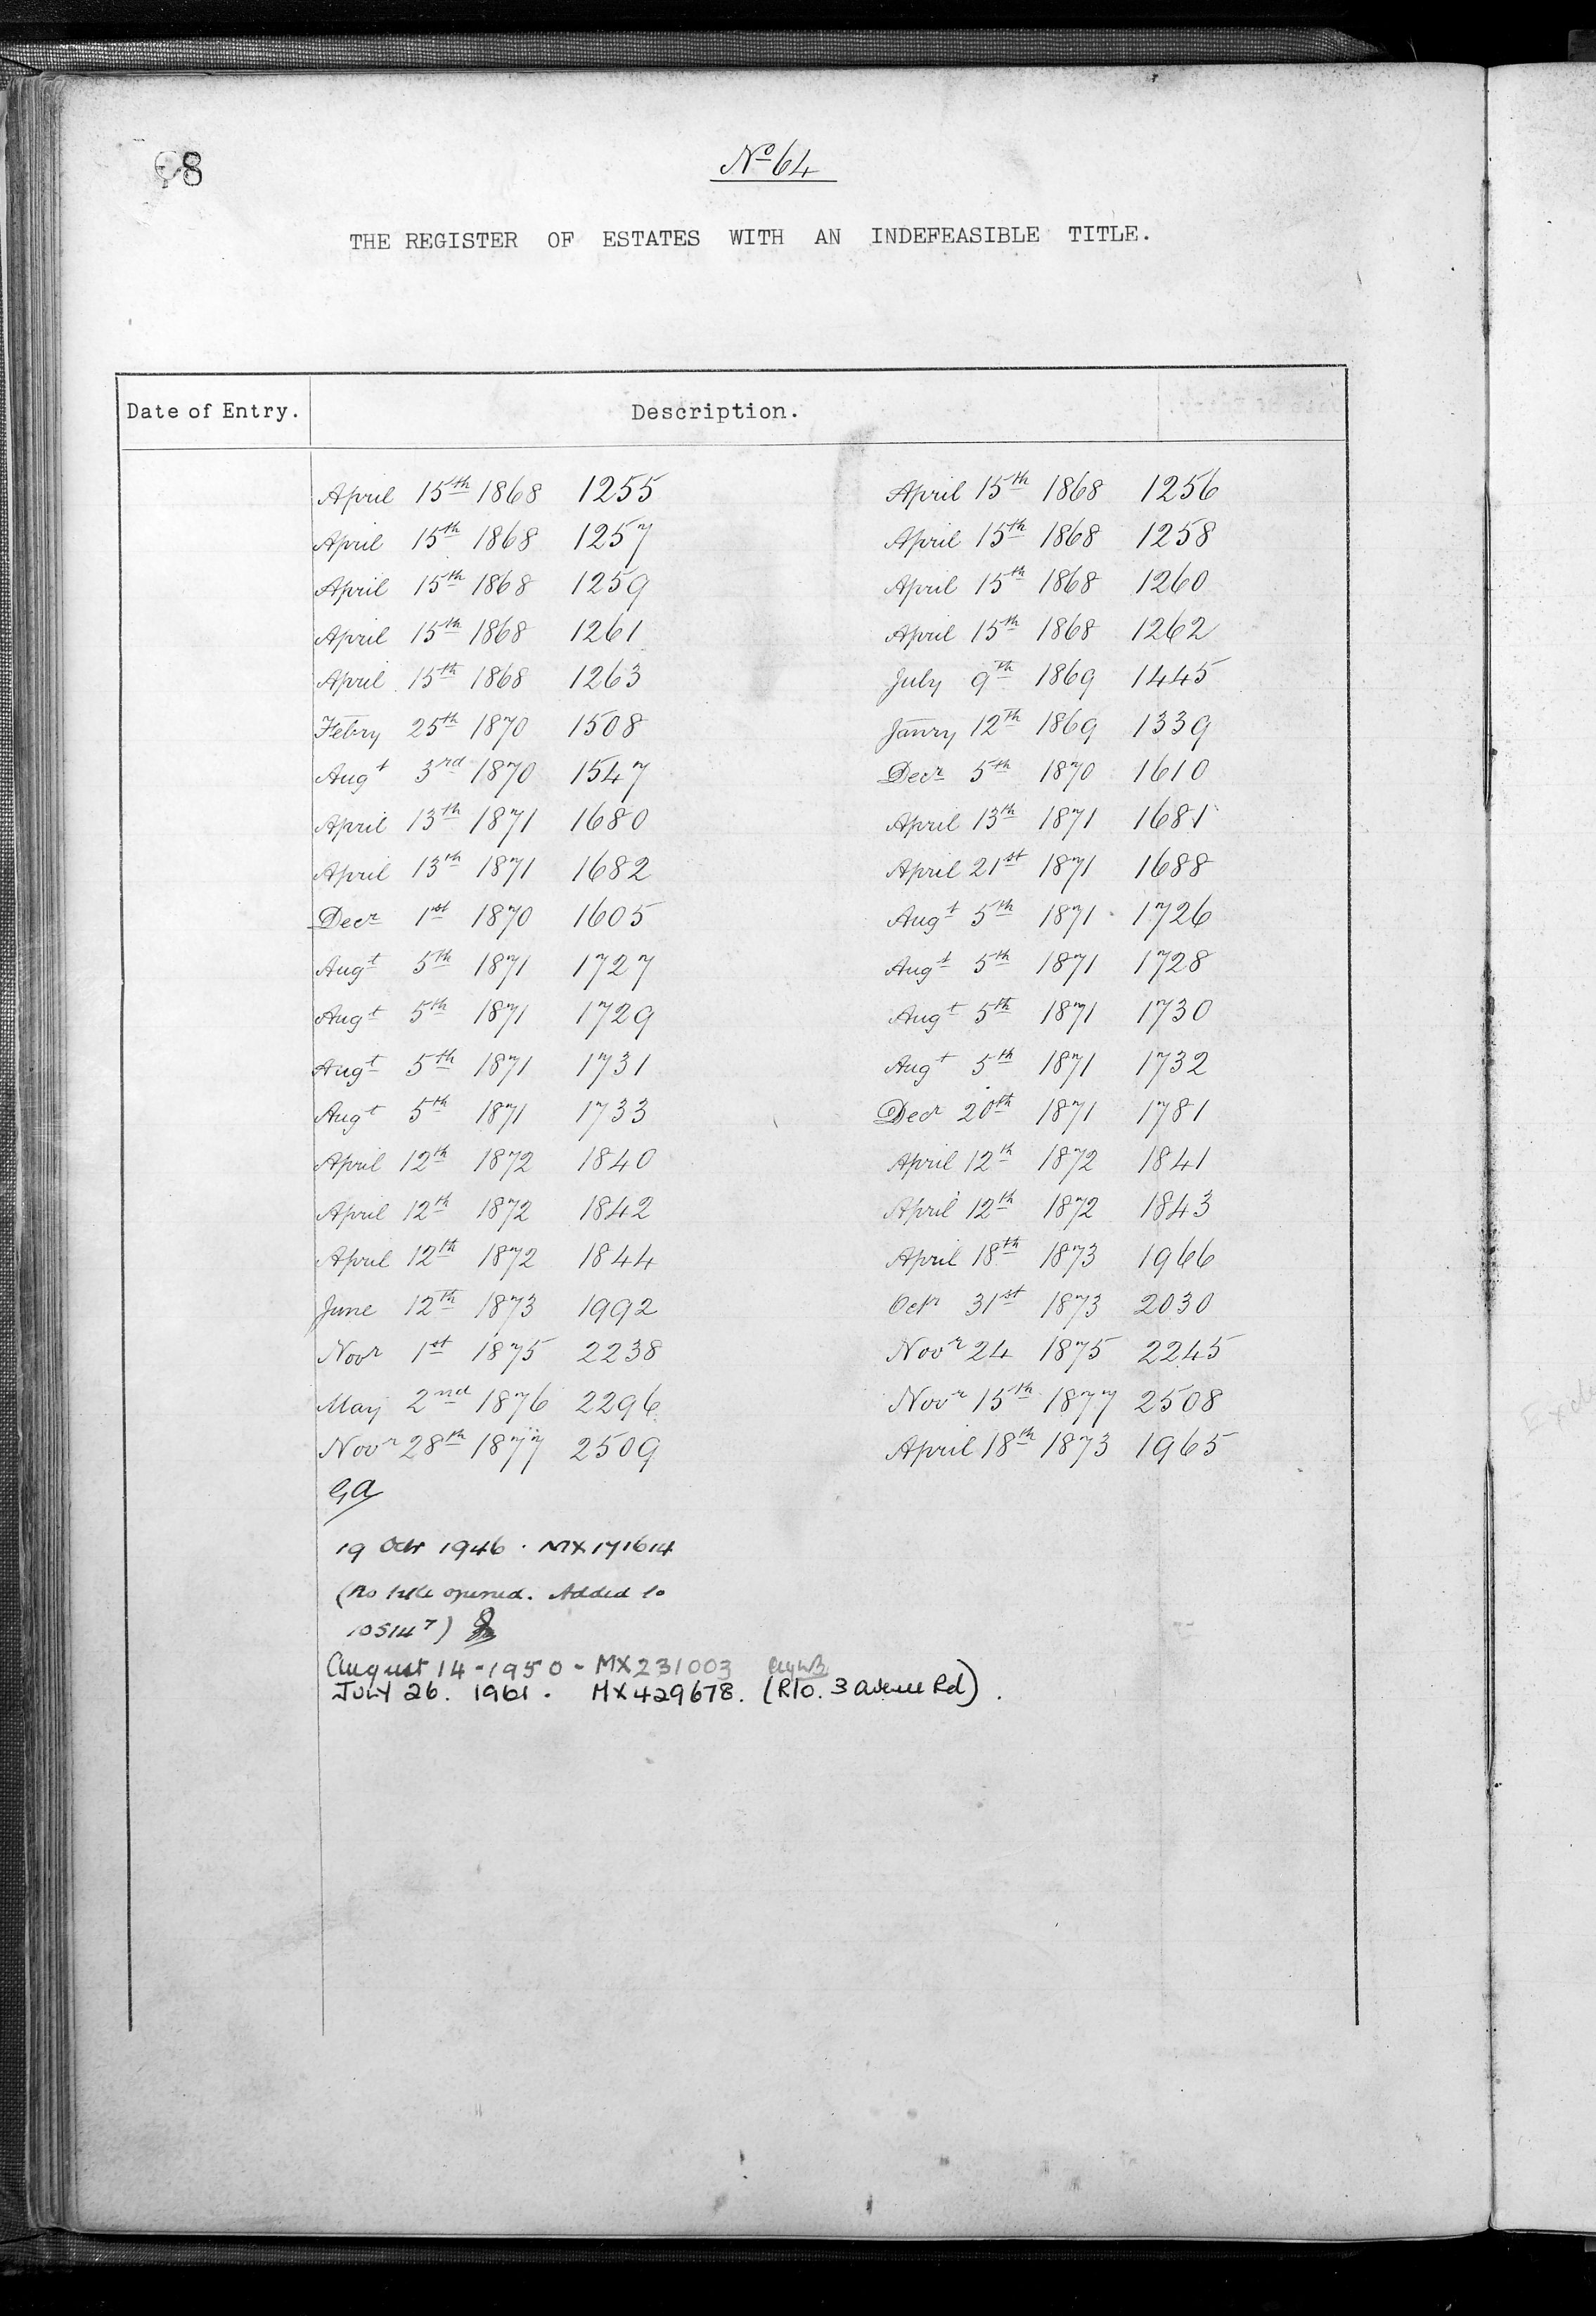 98
Nº 64
THE REGISTER OF ESTATES WITH AN INDEFEASIBLE TITLE.
Date of Entry. Description.
April 15th 1868 1255 April 15th 1868 1256
April 15th 1868 1257 April 15th 1868 1258
April 15th 1868 1259 April 15th 1868 1260
April 15th 1868 1261 April 15th 1868 1262
April 15th 1868 1263 July 9th 1869 1445
Febry 25th 1870 1508 Janry 12th 1869 1339
Augt 3rd 1870 1547 Decr 5th 1870 1610
April 13th 1871 1680 April 13th 1871 1681
April 13th 1871 1682 April 21st 1871 1688
Decr 1st 1870 1605 Augt 5th 1871 1726
Augt 5th 1871 1727 Augt 5th 1871 1728
Augt 5th 1871 1729 Augt 5th 1871 1730
Augt 5th 1871 1731 Augt 5th 1871 1732
Augt 5th 1871 1733 Decr 20th 1871 1781
April 12th 1872 1840 April 12th 1872 1841
April 12th 1872 1842 April 12th 1872 1843
April 12th 1872 1844 April 18th 1873 1966
June 12th 1873 1992 Octr 31st 1873 2030
Novr 1st 1875 2238 Novr 24 1875 2245
May 2nd 1876 2296 Novr 15th 1877 2508
Novr 28th 1877 2509 April 18th 1873 1965
19 Octr 1946 . MX171614
(No title opened. Added to
10514)
August 14 - 1950 - MX231003
July 26. 1961 . MX429678. (R/o. 3 Avenue Rd) .